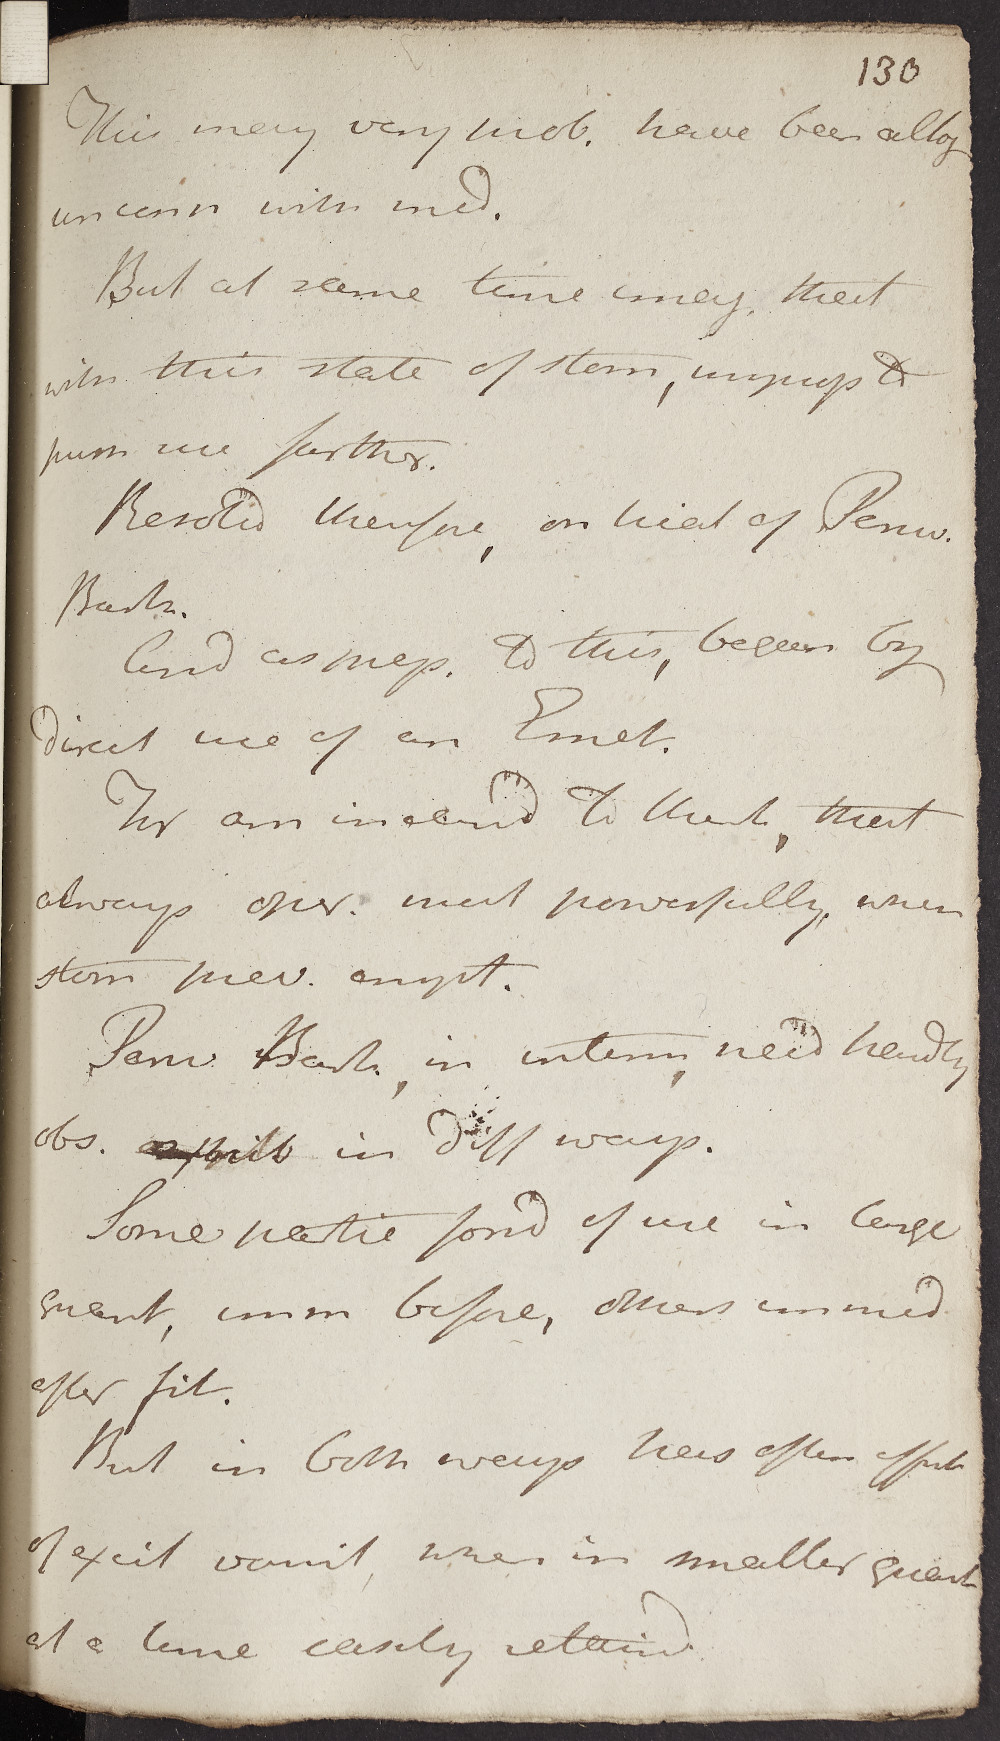 130
This may very prob. have been altog
unconn with med.
But at same time imag. that
with this state of stom, improp to
push use further.
Resolv'd therefore, on trial of Peruv.
Bark.
And as prep. to this, began by
direct use of an Emet.
For am inclin'd to think, that
always oper. most powerfully, when
stom prev. empt.
Peruv Bark, in interm, need hardly
obs. in diff ways.
Some partic fond of use in large
quant, imm before, others immed
after fit.
But in both ways has often effect
of excit vomit, when in smaller quant
at a time easily retain'd.